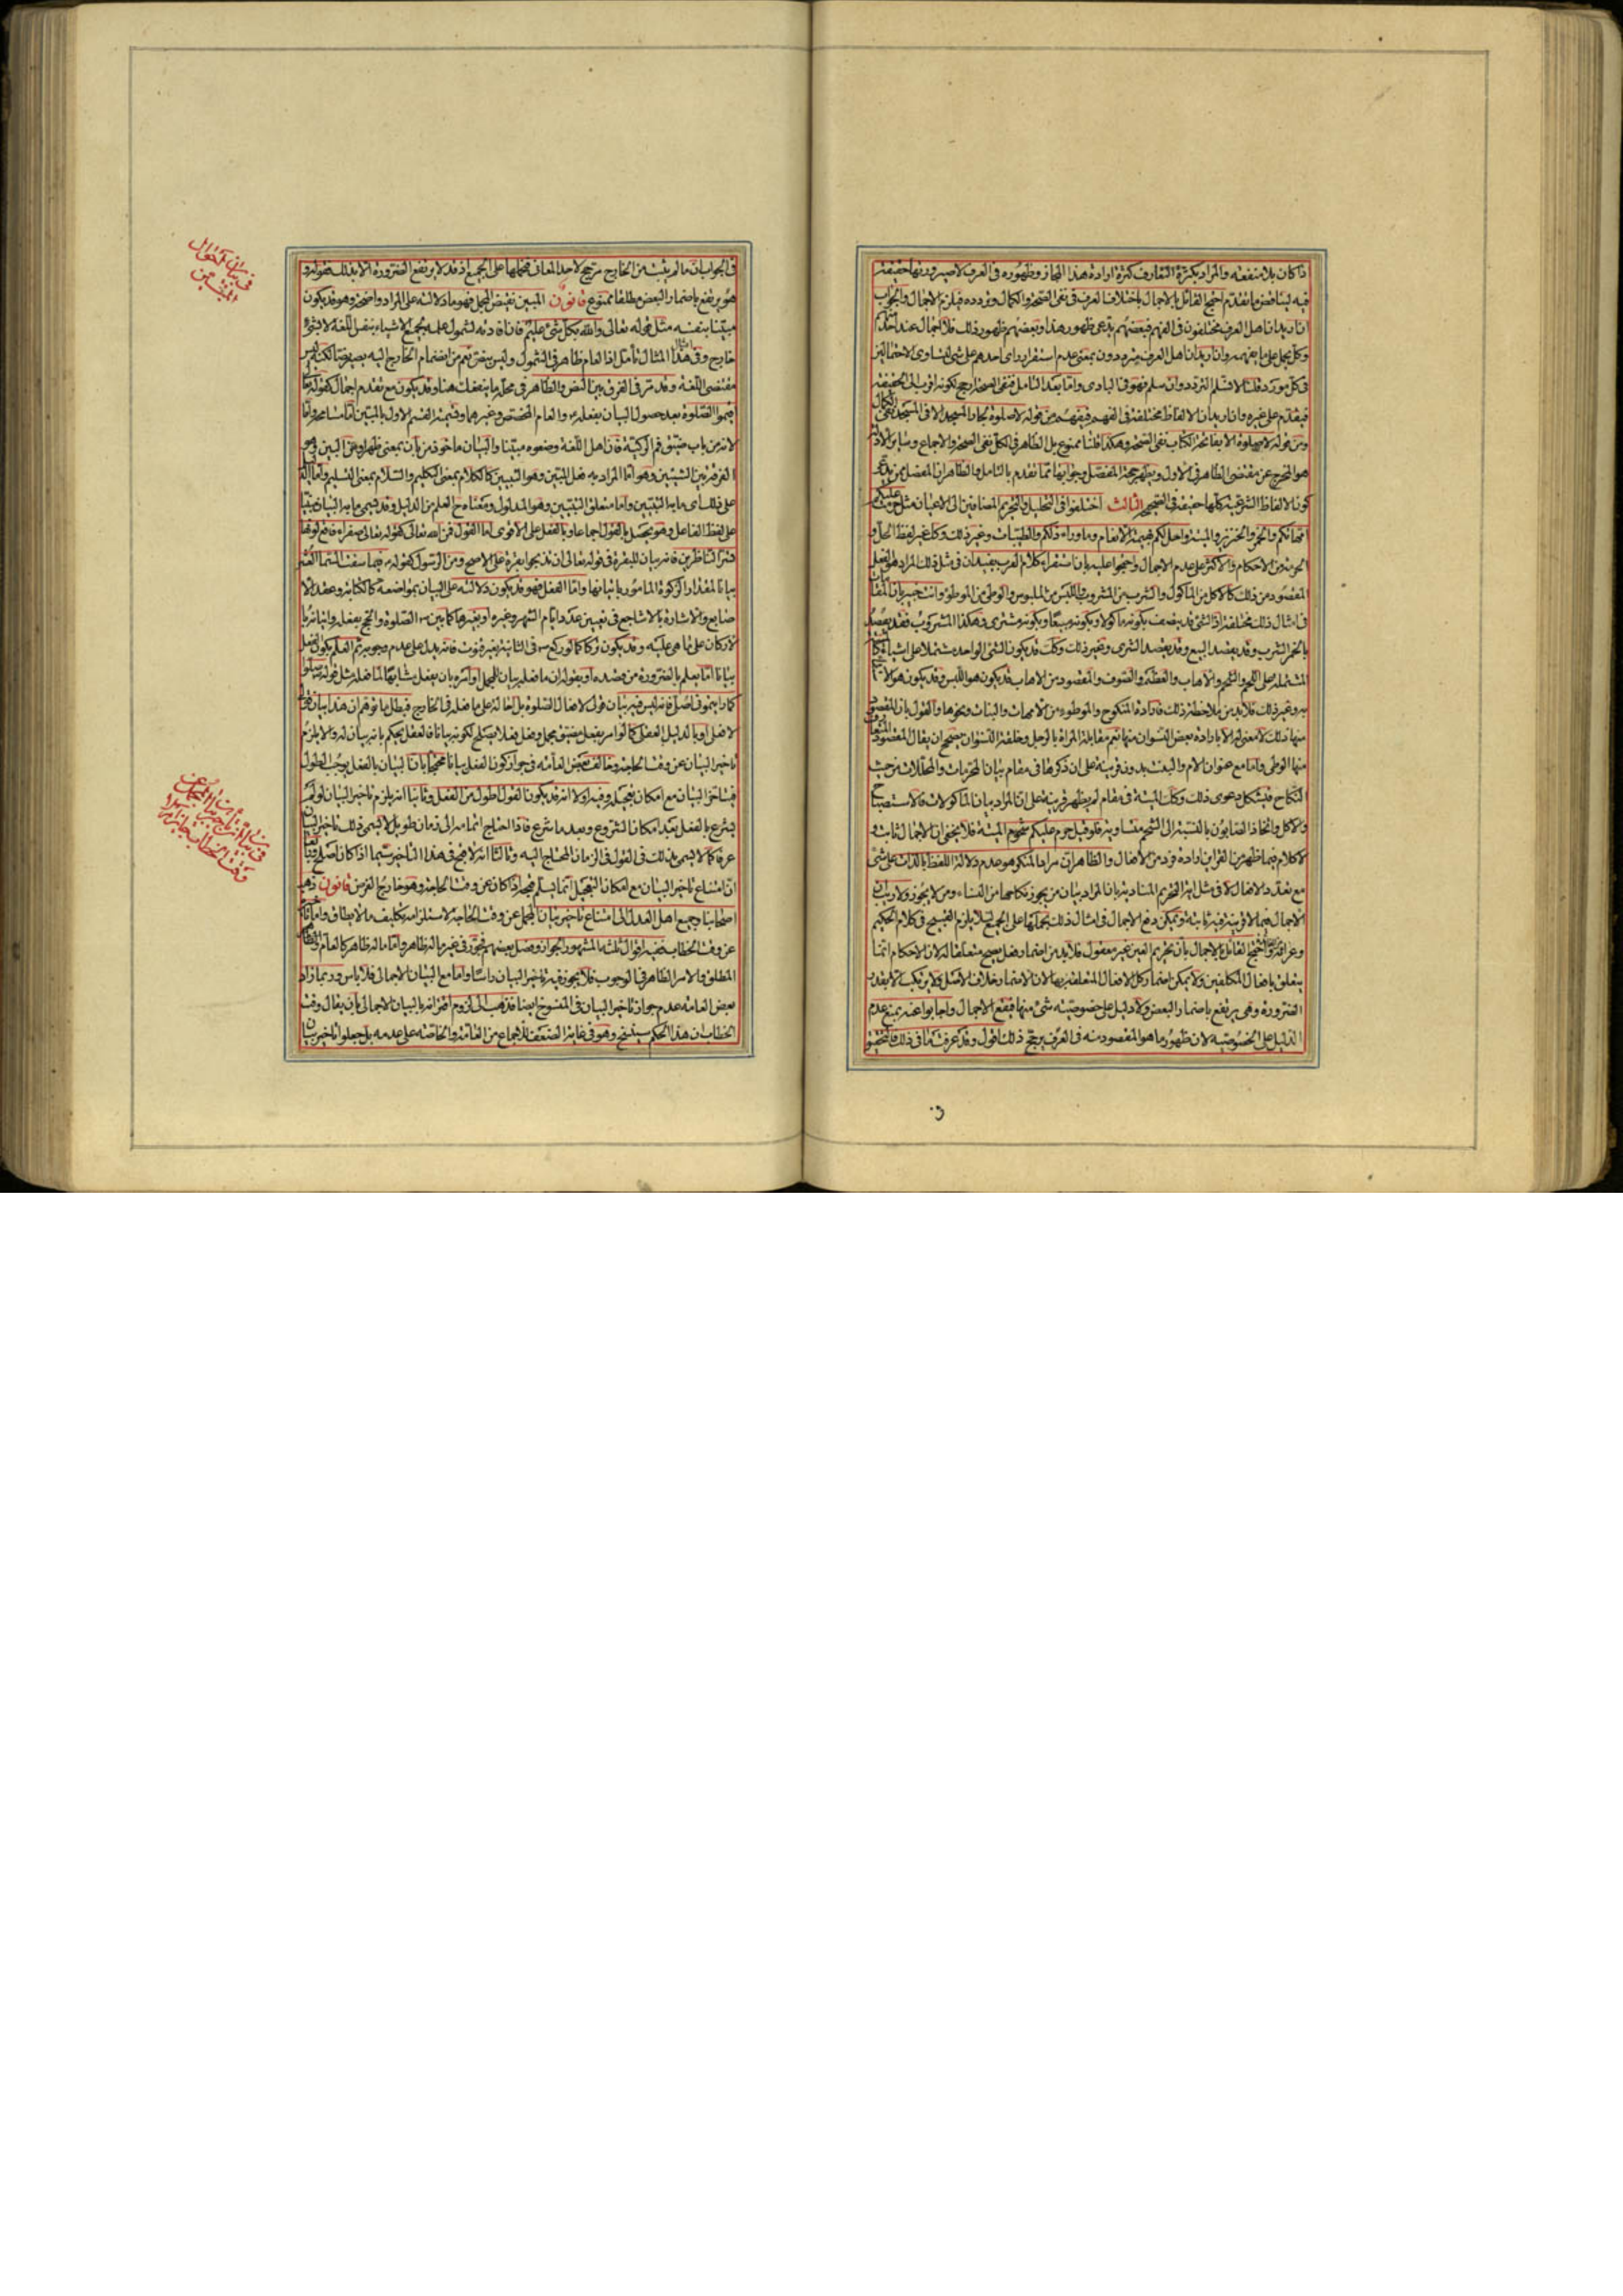 اذا كان بلا منفعة والمراد بكثرة التعارف كثرة ارادة هذا المجاز وظهوره فى العرف لا صيرورتها حقيقة
فيه ليناقض ما تقدم احتج القائل بالاجمال باختلاف العرف فى نفى الصحة والكمال وتردده فيلزم الاجمال والجواب
ان اريد ان اهل العرف مختلفون فى الفهم فبعضهم يدعى ظهور هذا وبعضهم ظهور ذلك فلا اجمال عند احدهم
وكل يحمل على ما يفهمه وان اريد ان اهل العرف مترددون بمعنى عدم استقرار راى احدهم على شئ لتساوى الاحتمالين
فى كل مورد قلنا لا نسلم التردد وان سلم فهو فى البادى واما بعد التامل فنفى الصحة ارجح لكونه اقرب الى الحقيقة
فيقدم على غيره وان اريد ان الالفاظ مختلفة فى الفهم فيفهم من قوله لا صلوة لجار المسجد الا فى المسجد نفى الكمال
ومن قوله لا صلوة الا بفاتحة الكتاب نفى الصحة وهكذا قلنا ممنوع بل الظاهر فى الكل نفى الصحة والاجماع وساير الادلة
هو المخرج عن مقتضى الظاهر فى الاول ويظهر حجة المفصل وجوابها مما تقدم بالتامل والظاهر ان المفصل ممن يدعى
كون الالفاظ الشرعية كلها حقيقة فى الصحيح الثالث اختلفوا فى التحليل والتحريم المضافين الى الاعيان مثل حرمت عليكم
امهاتكم والخمر والخنزير والميتة واحل لكم بهيمة الانعام وما وراء ذلكم والطيبات وغير ذلك وكذا غير لفظ الحل و
الحرمة من الاحكام فالاكثر على عدم الاجمال واحتجوا عليه بان استقراء كلام العرب يفيد ان فى مثل ذلك المراد هو الفعل
المقصود من ذلك كالاكل من الماكول والشرب من المشروب واللبس من الملبوس والوطى من الموطوء وانت خبير بان المقامات
فى امثال ذلك مختلفة اذ الشئ قد يتصف بكونه ماكولا وبكونه مبيعا وبكونه مشترى وهكذا المشروب فقد يقصد
بالخمر الشرب وقد يقصد البيع وقد يقصد الشرى وغير ذلك وكذلك قد يكون الشئ الواحد مشتملا على اشياء كالميتة
المشتملة على اللحم والشحم والاهاب والعظم والصوف والمقصود من الاهاب قد يكون هو اللبس وقد يكون هو الاستقاء
به وغير ذلك فلا بد من ملاحظة ذلك فارادة المنكوح والموطوء من الامهات والبنات ونحوها والقول بان المقصود
منها ذلك لا معنى له الا بارادة بعض النسوان منها نعم مقابلة المراة بالرجل وخلقة النسوان يصحح ان يقال المقصود المتعارف
منها الوطى واما مع عنوان الام والبنت بدون قرينة على ان ذكرها فى مقام بيان المحرمات والمحللات من حيث
النكاح فيشكل دعوى ذلك وكذلك الميتة فى مقام لم يظهر قرينة على ان المراد بيان الماكولات فالاستصباح
والاكل واتخاذ الصابون بالنسبة الى الشحم متساوية فلو قيل حرم عليكم شحوم الميتة فلا يخفى ان الاجمال ثابت و
لا كلام فيما ظهر من القراين ارادة فرد من الافعال والظاهر ان مراد المنكر هو عدم دلالة اللفظ بالذات على شئ
مع تعدد الافعال لا فى مثل اية التحريم المنادية بان المراد بيان من يجوز نكاحها من النساء ومن لا يجوز ولا ريب ان
الاجمال فيما لا قرينة فيه ثابتة ويمكن دفع الاجمال فى امثال ذلك بحملها على الجميع لئلا يلزم القبيح فى كلام الحكيم
القائل بالاجمال بان تحريم العين غير معقول فلا بد من اضمار فعل يصح متعلقا له لان الاحكام انما
يتعلق بافعال المكلفين ولا يمكن اضمار كل الافعال المتعلقة بها لان الاضمار خلاف الاصل ولا يرتكب الا بقدر
الضرورة وهى يرتفع باضمار البعض ولا دليل على خصوصية شئ منها فيقع الاجمال واجابوا عنه بمنع عدم
الدليل على الخصوصية لان ظهور ما هو المقصود منه فى العرف يرجح ذلك اقول وقد عرفت ما فى ذلك فالتحقيق
فى الجواب ان ما لم يثبت من الخارج مرجح لاحد المعانى فحملها على الجميع اذ قد لا يرتفع الضرورة الا بذلك فقوله و
هو يرتفع باضمار البعض مطلقا ممنوع قانون المبين نقيض المجمل فهو ما دلالته على المراد واضحة وهو قد يكون
مبينا بنفسه مثل قوله تعالى والله بكل شئ عليم فان افادته لشمول علمه بجميع الاشياء بنفس اللغة لا بشئ
خارج وفى هذا المثال تامل اذ العام ظاهر فى الشمول وليس بنص نعم من انضمام الخارج اليه يصير نصا لكنه ليس
مقتضى اللغة وقد مر فى الفرق بين النص والظاهر فى محله ما ينفعك هنا وقد يكون مع تقدم اجمال كقوله تعالى
اقيموا الصلوة بعد حصول البيان بفعله ص والعام المخصص وغيرهما وتسمية القسم الاول بالمبين اما مسامحة واما
لانه من باب ضيق فم الركية فان اهل اللغة وضعوه مبينا والبيان ماخوذ من بان بمعنى ظهر او من البين وهو
الفرقة بين الشيئين وهو اما المراد به فعل المبين وهو التبيين كالكلام بمعنى التكليم والسلام بمعنى التسليم واما الدليل
على ذلك اى ما به التبيين واما متعلق التبيين وهو المدلول ومعناه ح العلم من الدليل وقد يسمى ما به البيان مبينا
على لفظ الفاعل وهو يحصل بالقول اجماعا وبالفعل على الاقوى اما القول فمن الله تعالى كقوله تعالى صفراء فاقع لونها
تسر الناظرين فانه بيان للبقرة فى قوله تعالى ان تذبحوا بقرة على الاصح ومن الرسول كقوله ص فيما سقت السماء العشر
بيانا لمقدار الزكوة المامور باتيانها واما الفعل فهو قد يكون دلالته على البيان بمواضعة كالكتابة وعقد الا
صابع والاشارة بالاصابع فى تعيين عدد ايام الشهر وغيره او بغيرها كما بين ص الصلوة والحج بفعله واتيانه بالا
لاركان على ما هى عليه وقد يكون تركا كما لو ركع ص فى الثانية بغير قنوت فانه يدل على عدم وجوبه ثم العلم بكون الفعل
بيانا اما يعلم بالضرورة من قصده او بقوله ان ما فعله بيان للمجمل او امره بان يفعل مشابها لما فعله مثل قوله صلوا
كما رايتمونى اصلى فانه ليس فيه بيان قولى لافعال الصلوة بل احاله على ما فعله فى الخارج فبطل ما توهم ان هذا بيان قولى
لا فعلى او بالدليل العقلى كما لو امر بفعل مضيق مجمل وفعل فعلا يصلح لكونه بيانا فالعقل يحكم بانه بيان له والا يلزم
تاخير البيان عن وقت الحاجة وخالف بعض العامة فى جواز كون الفعل بيانا محتجا بان البيان بالفعل يوجب الطول
فيتاخر البيان مع امكان تعجيله وفيه اولا انه قد يكون القول اطول من الفعل وثانيا انه يلزم تاخير البيان لو لم
يشرع بالفعل بعد امكان الشروع وبعد ما شرع فاذا احتاج اتمامه الى زمان طويل لا يسمى ذلك تاخير البيان
عرفا كما لا يسمى بذلك فى القول فى الزمان المحتاج اليه وثالثا انه لا قبح فى هذا التاخير سيما اذا كان اصلح ورابعا
ان امتناع تاخير البيان مع امكان التعجيل انما يسلم قبحه اذا كان عن وقت الحاجة وهو خارج الفرض قانون ذهب
اصحابنا وجميع اهل العدل الى امتناع تاخير بيان المجمل عن وقت الحاجة لاستلزامه تكليف ما لا يطاق واما تاخيره
عن وقت الخطاب ففيه اقوال ثلثة المشهور الجواز وفصل بعضهم فجوز فى غير ما له ظاهر واما ما له ظاهر كالعام والظاهر
المطلق والامر الظاهر فى الوجوب فلا يجوز فيه تاخير البيان راسا واما مع البيان الاجمالى فلا باس وربما زاد
بعض العامة عدم جواز تاخير البيان فى المنسوخ ايضا فذهب الى لزوم اقترانه بالبيان الاجمالى بان يقال وقت
الخطاب ان هذا الحكم سينسخ وهو فى غاية الضعف للاجماع من العامة والخاصة على عدمه بل جعلوا تاخير بيان
فى بيان احوال
المبين
فى بيان تاخير بيان المجمل عن
وقت الخطاب